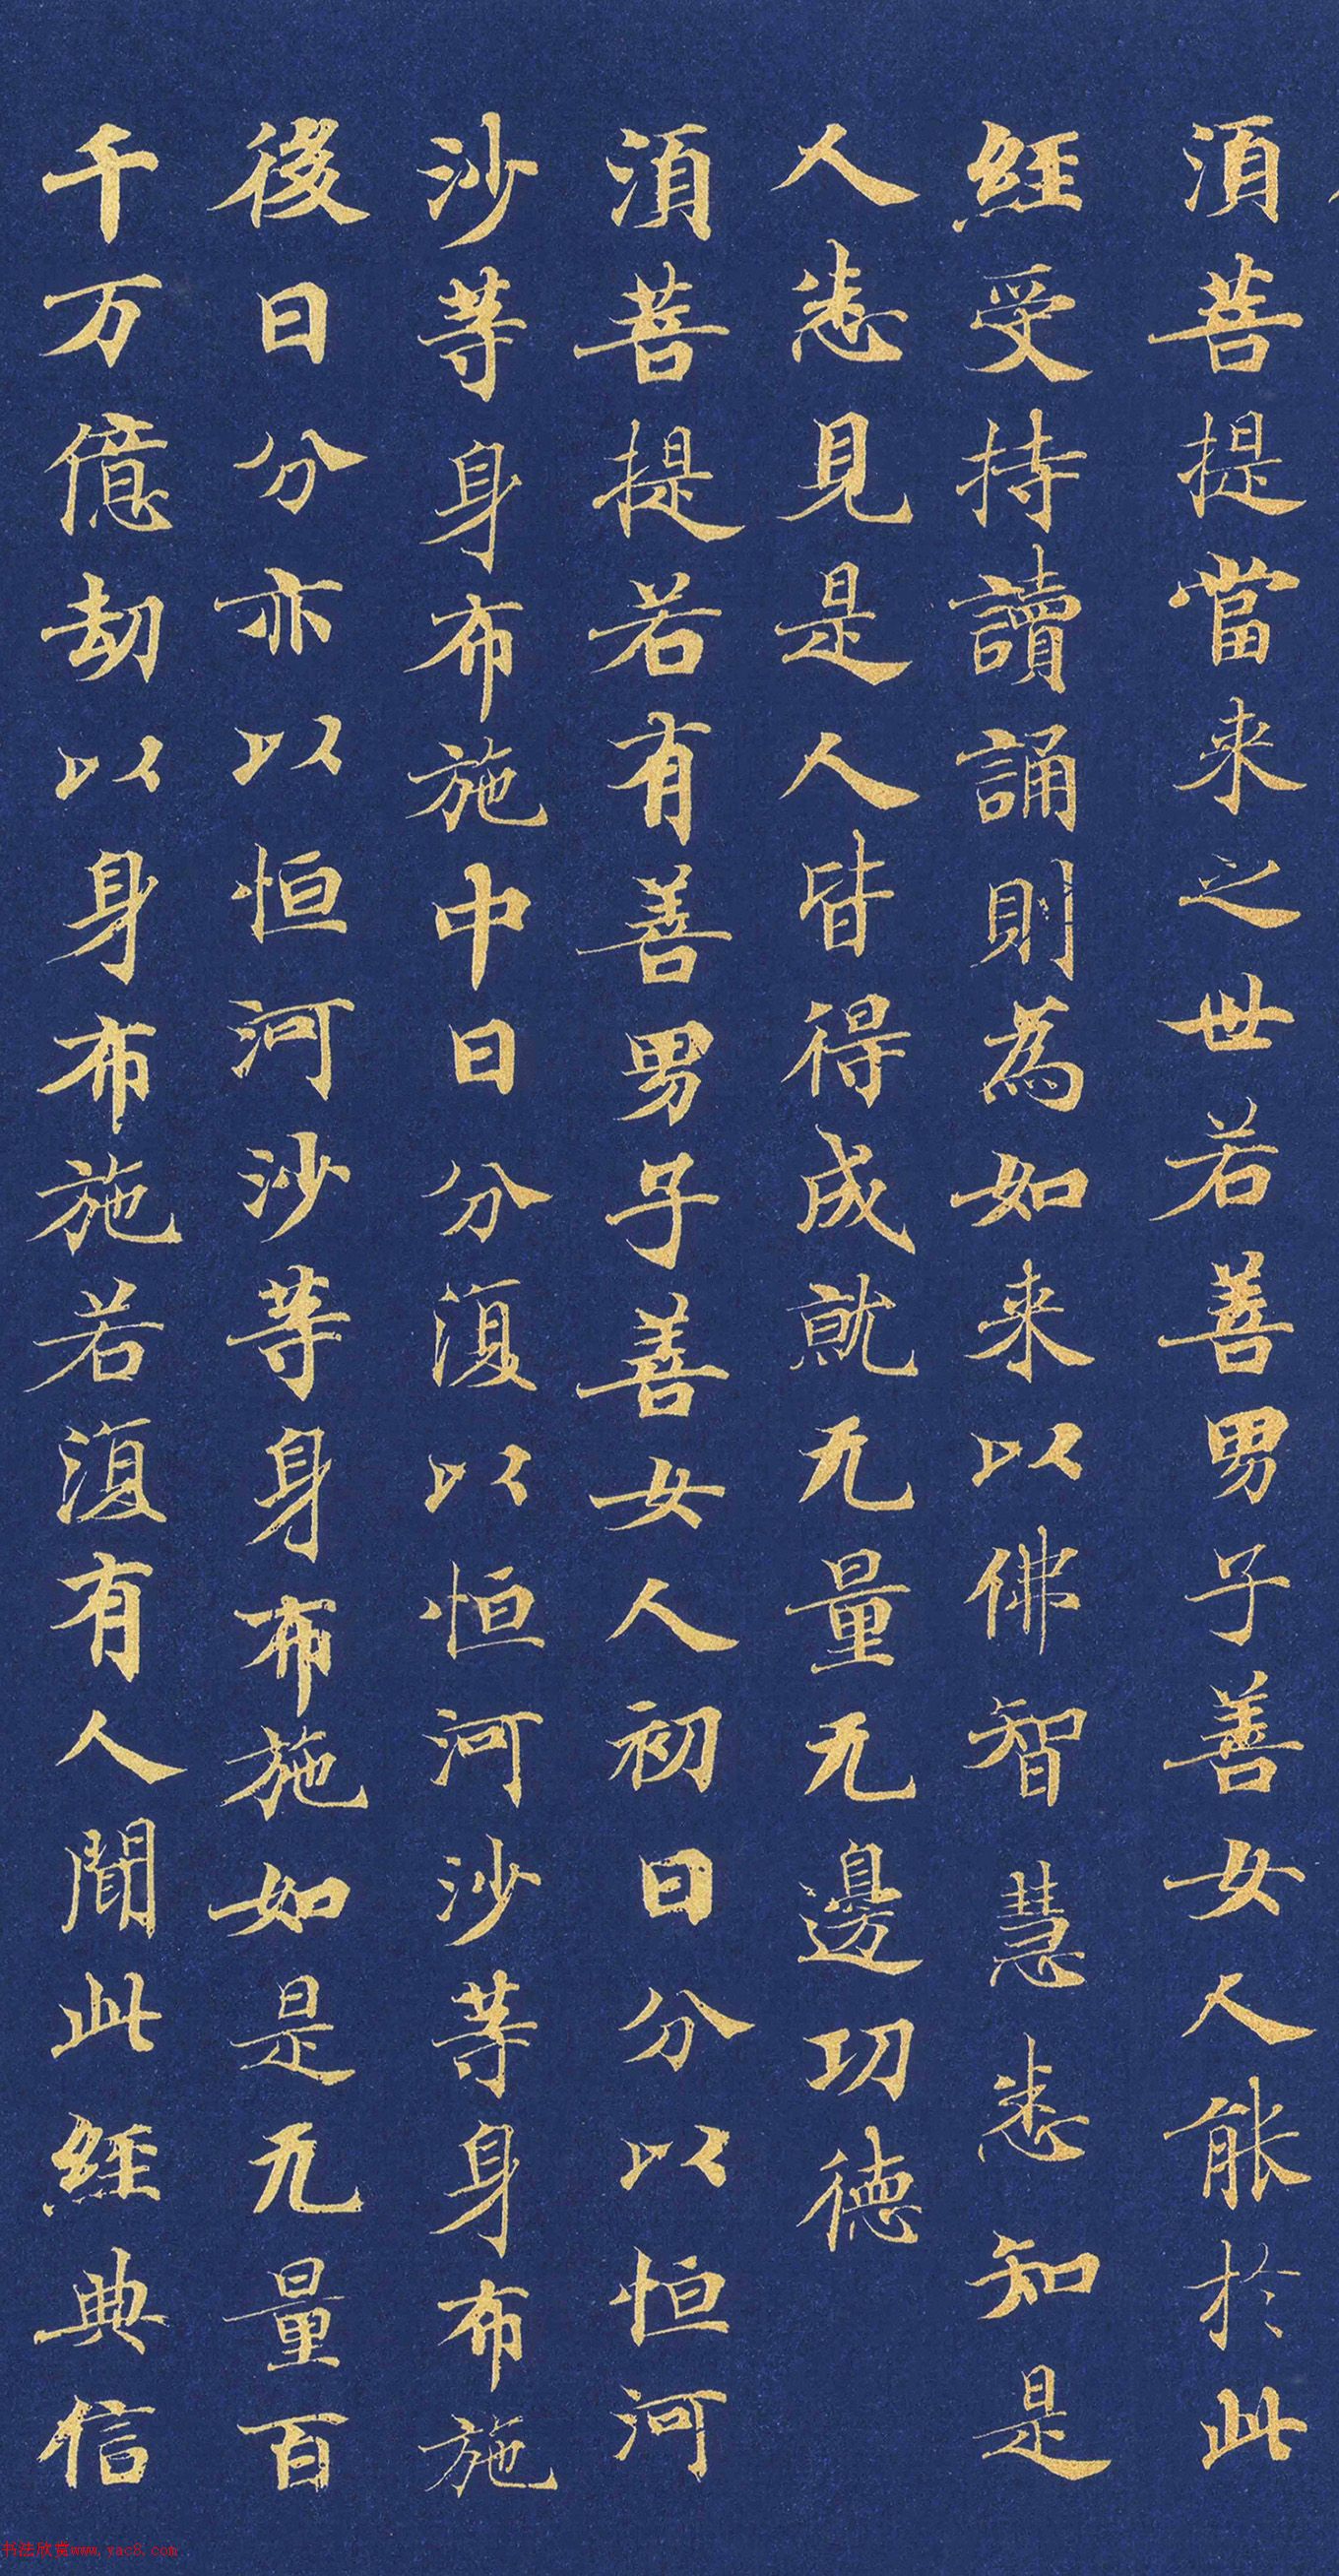 須菩提當來之世若善男子善女人能於此
經受持讀誦則為如来以佛智慧悉知是
人悉見是人皆得成就无量无邊功德
須菩提若有善男子善女人初日分以恒河
沙等身布施中日分復以恒河沙等身布施
後日分亦以恒河沙等身布施如是无量百
千万億劫以身布施若復有人聞此經典信
书法欣赏www.yac8.com